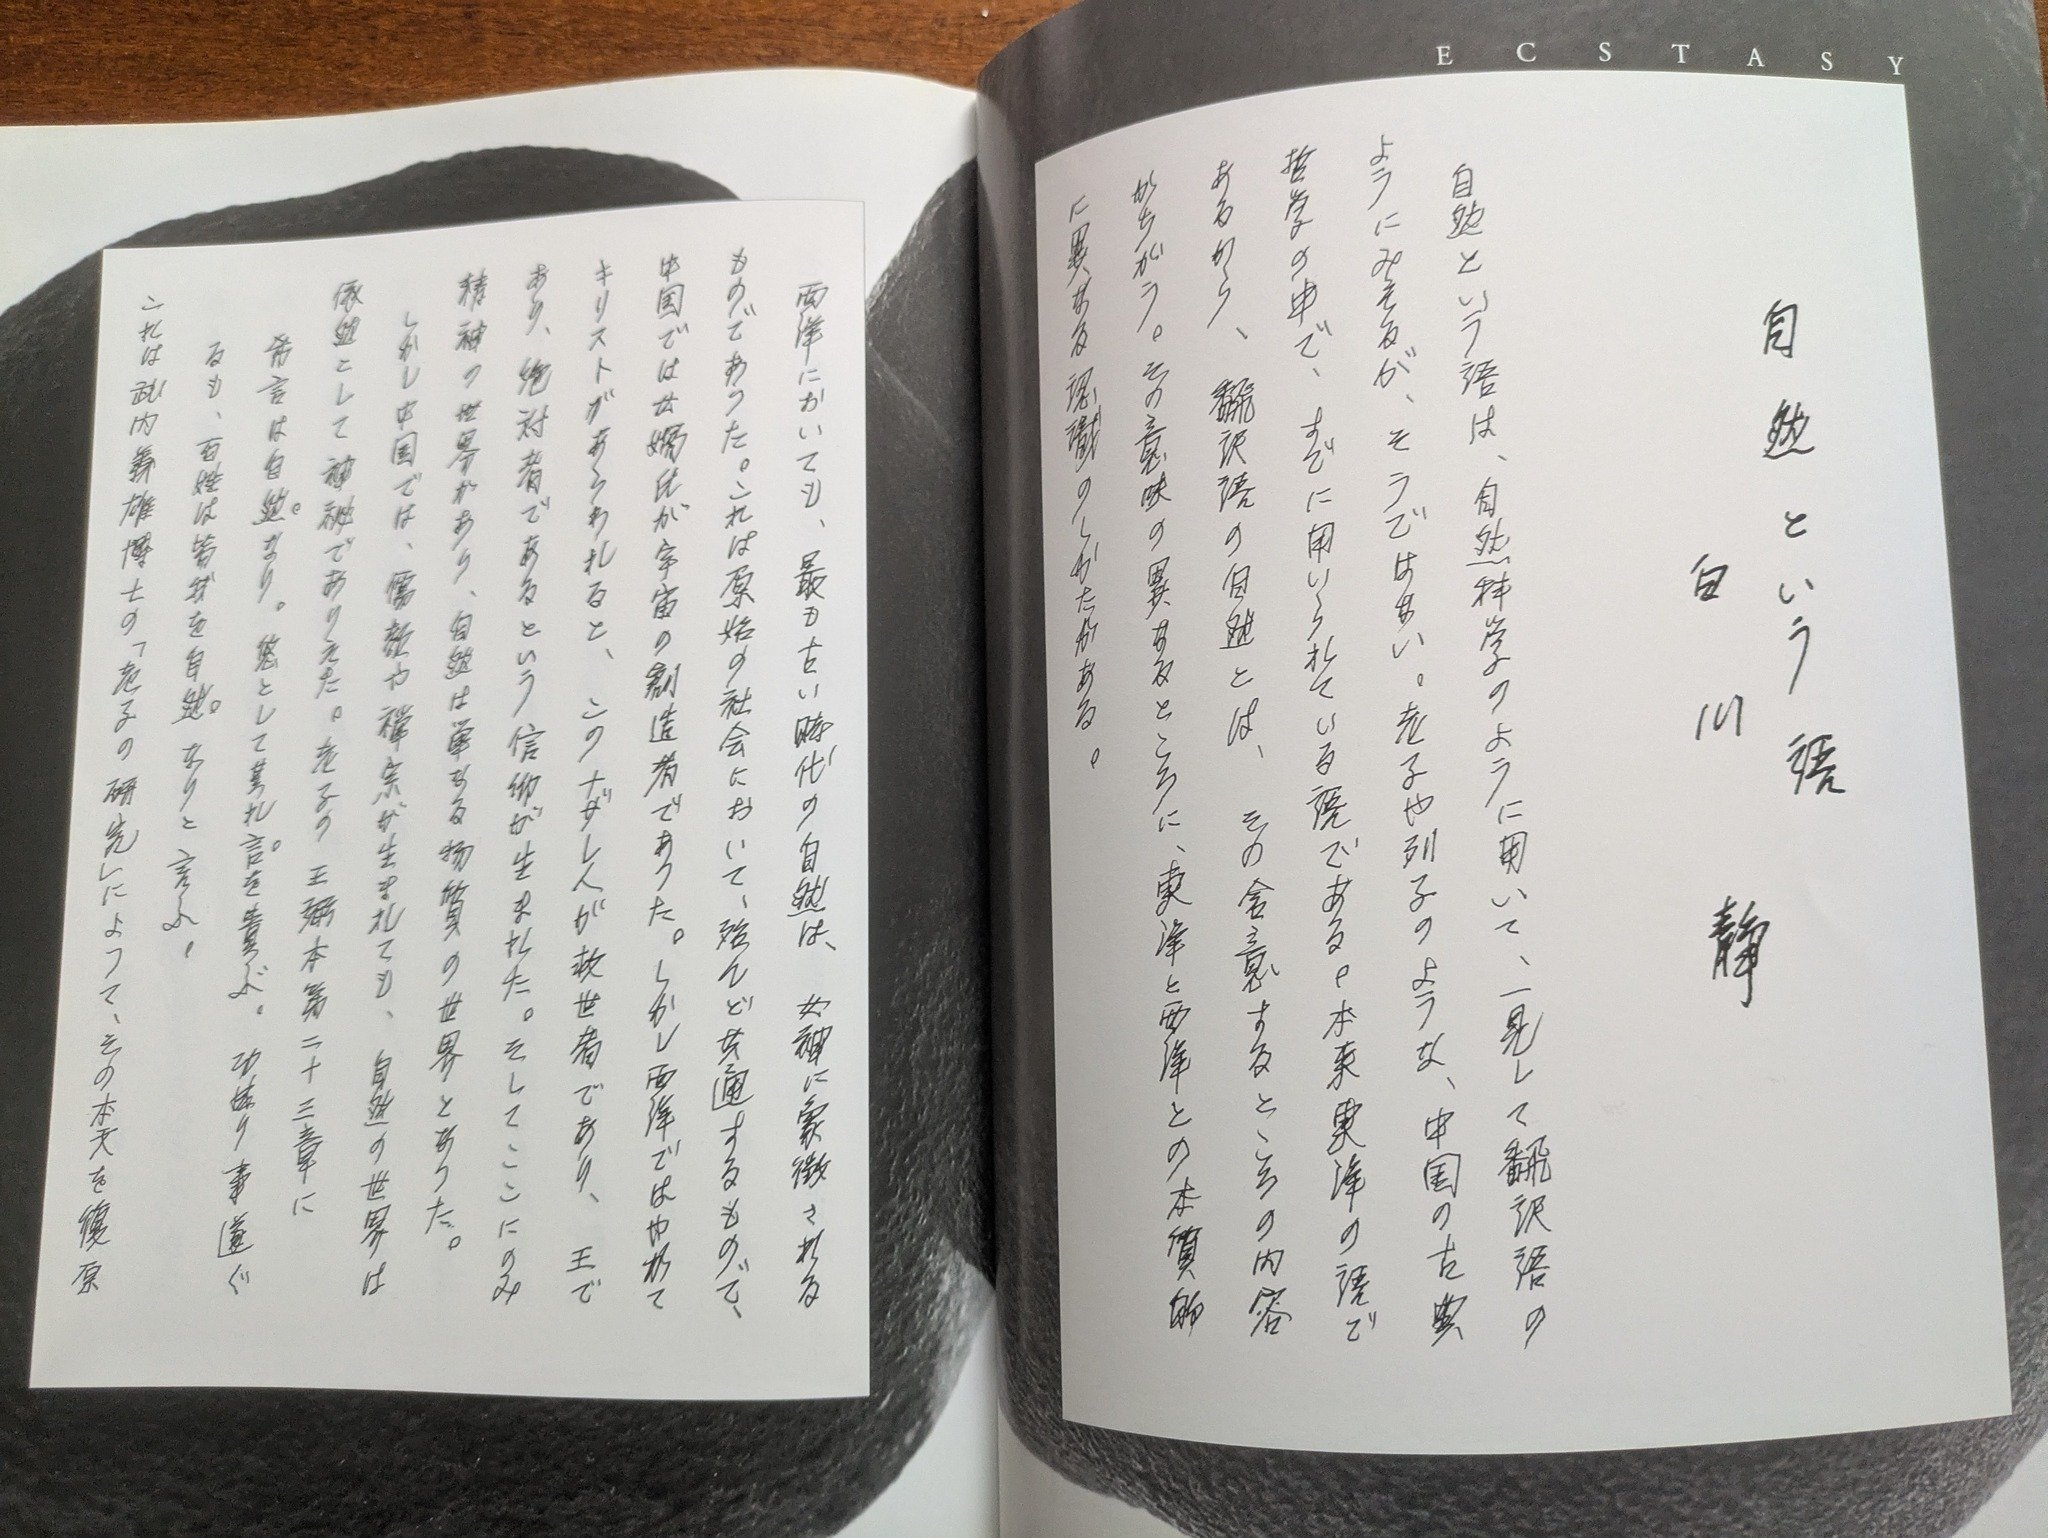 ECSTASY
自然という語
白川 静
自然という語は、自然科学のように用いて、一見して翻訳語の
ようにみえるが、そうではない。老子や列子のような、中国の古典
哲学の中で、すでに用いられている語である。本来東洋の語で
あるから、翻訳語の自然とは、その含意するところの内容
がちがう。その意味の異なるところに、東洋と西洋との本質的
に異なる認識のしかたがある。
西洋においても、最も古い時代の自然は、女神に象徴される
ものであった。これは原始の社会において、殆んど共通するもので、
中国では女媧氏が宇宙の創造者であった。しかし西洋ではやがて
キリストがあらわれると、このナザレ人が救世者であり、王で
あり、絶対者であるという信仰が生まれた。そしてここにのみ
精神の世界があり、自然は単なる物質の世界となった。
しかし中国では、儒教や禅宗が生まれても、自然の世界は
依然として神秘でありえた。老子の王弼本第二十三章に
希言は自然なり。悠として其れ言を貴ぶ。功成り事遂ぐ
るも、百姓は皆我を自然なりと言ふ。
これは武内義雄博士の「老子の研究」によって、その本文を復原